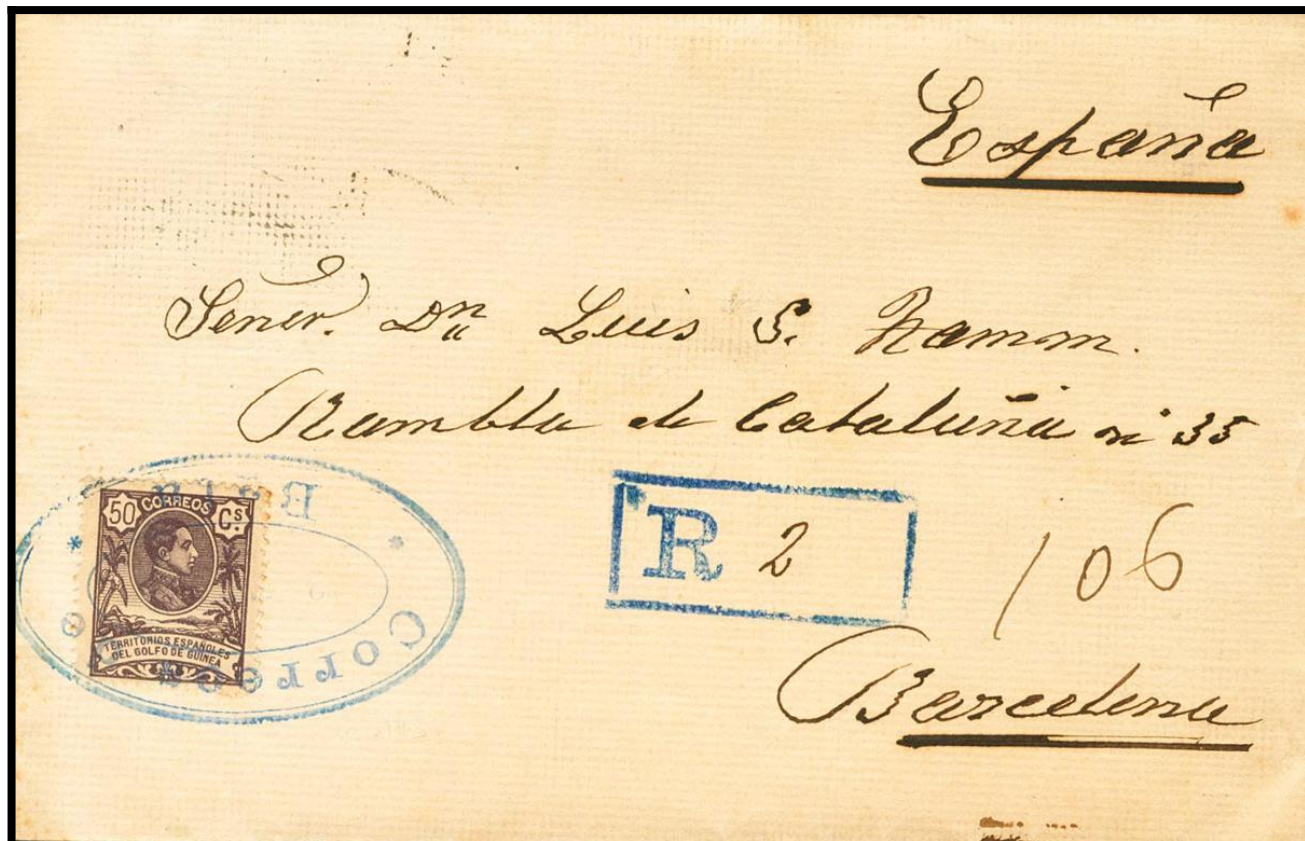 España
Señor. Dn Luis S.
Rambla de Cataluña nº 35
50 CORREOS Cs.
TERRITORIOS ESPAÑOLES
DEL GOLFO DE GUINEA
Correos
R 2
106
Barcelona